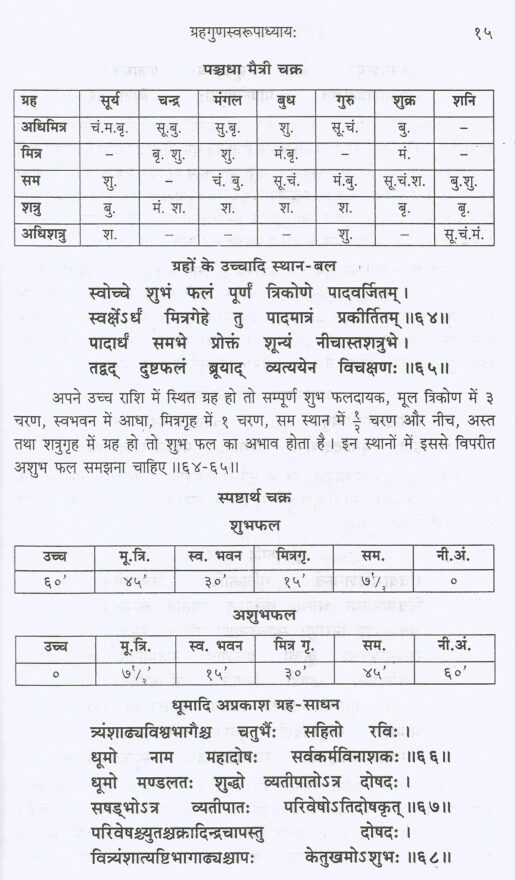 ग्रहगुणस्वरूपाध्याय: १५
पञ्चधा मैत्री चक्र
ग्रह सूर्य चन्द्र मंगल बुध गुरु शुक्र शनि
अधिमित्र चं.म.बृ. सू.बु. सु.बृ. शु. सू.चं. बु. –
मित्र – बृ. शु. शु. मं.बृ. – मं. –
सम शु. – चं. बु. सू.चं. मं.बु. सू.चं.श. बु.शु.
शत्रु बु. मं. श. श. श. श. बृ. बृ.
अधिशत्रु श. – – – शु. सू.चं.मं.
ग्रहों के उच्चादि स्थान-बल
स्वोच्चे शुभं फलं पूर्णं त्रिकोणे पादवर्जितम् ।
स्वर्क्षेऽर्धं मित्रगेहे तु पादमात्रं प्रकीर्तितम् ॥६४॥
पादार्धं समभे प्रोक्तं शून्यं नीचास्तशत्रुभे ।
तद्वद् दुष्टफलं ब्रूयाद् व्यत्ययेन विचक्षणः ॥६५॥
अपने उच्च राशि में स्थित ग्रह हो तो सम्पूर्ण शुभ फलदायक, मूल त्रिकोण में ३
चरण, स्वभवन में आधा, मित्रगृह में १ चरण, सम स्थान में १/२ चरण और नीच, अस्त
तथा शत्रुगृह में ग्रह हो तो शुभ फल का अभाव होता है। इन स्थानों में इससे विपरीत
अशुभ फल समझना चाहिए ॥६४-६५॥
स्पष्टार्थ चक्र
शुभफल
उच्च मू.त्रि. स्व. भवन मित्रगृ. सम. नी.अं.
६०' ४५ ३०' १५' ७१/२ ०
अशुभफल
उच्च मू.त्रि. स्व. भवन मित्र गृ. सम. नी.अं.
० ७१/२' १५' ३०' ४५' ६०'
धूमादि अप्रकाश ग्रह-साधन
त्र्यंशाढ्यविश्वभागैश्च चतुर्भैः सहितो रविः ।
धूमो नाम महादोषः सर्वकर्मविनाशकः ॥६६॥
धूमो मण्डलतः शुद्धो व्यतीपातोऽत्र दोषदः ।
सषड्भोऽत्र व्यतीपातः परिवेषोऽतिदोषकृत् ॥६७॥
परिवेषश्च्युतश्चक्रादिन्द्रचापस्तु दोषदः ।
वित्र्यंशात्यष्टिभागाढ्यश्चापः केतुखमोऽशुभः ॥६८॥